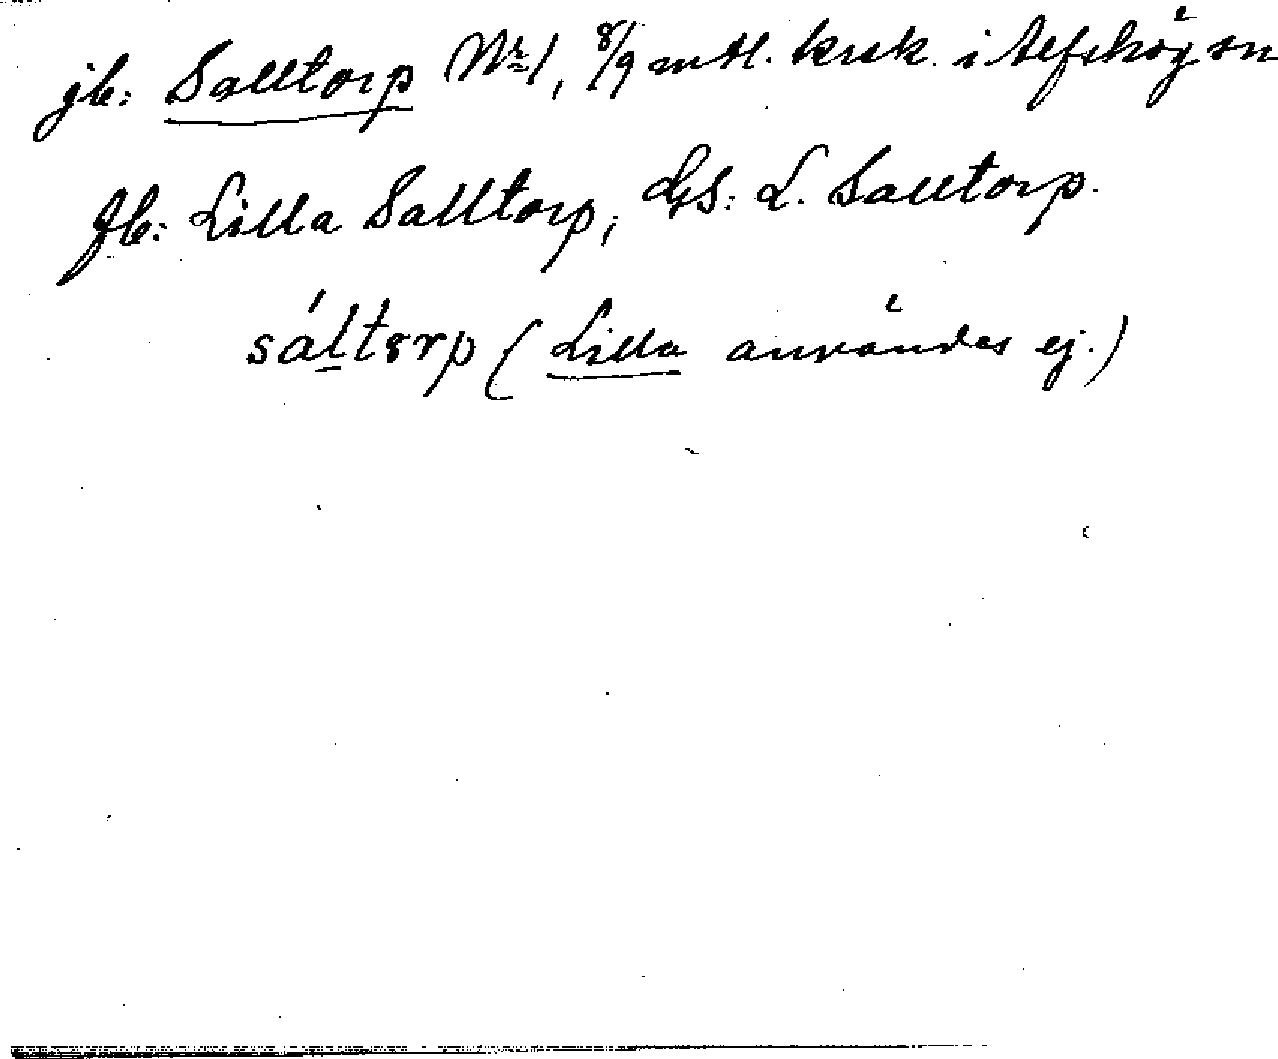 jb: Salltorp Nr 1, 8/9 mtl. krsk. i Alfshög sn
fb: Lilla Salltorp, GS: L. Salltorp.
sáltɤrp (Lilla användes ej.)